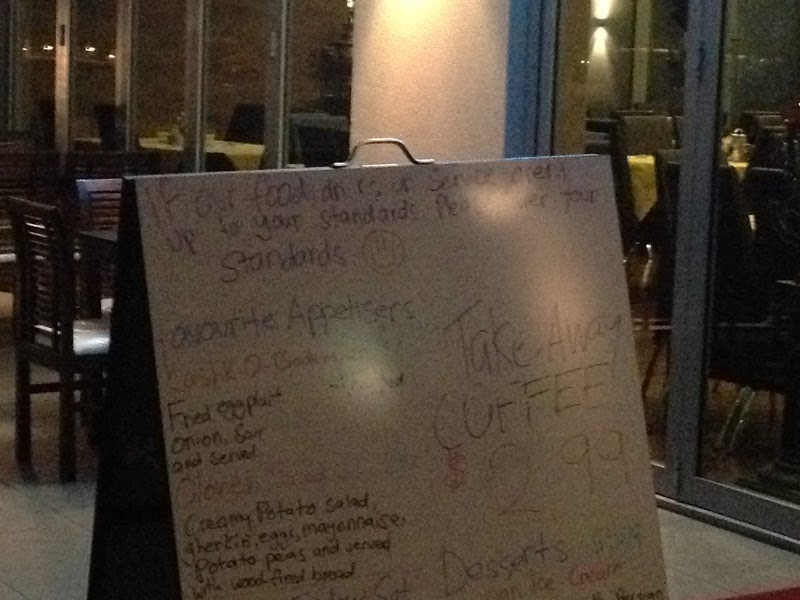 If our food, drinks or Service aren't
up to your standards. Please lower your
Standards
Favourite Appetisers
Kashk-O-Bademjan
Fried eggplant
onion, Sour
and served
Take-Away
COFFEE!
$2.99
Creamy Potato Salad,
gherkin, eggs, mayonnaise,
Potato, peas and served
with wood-fired bread
Desserts
Ice Cream
Persian